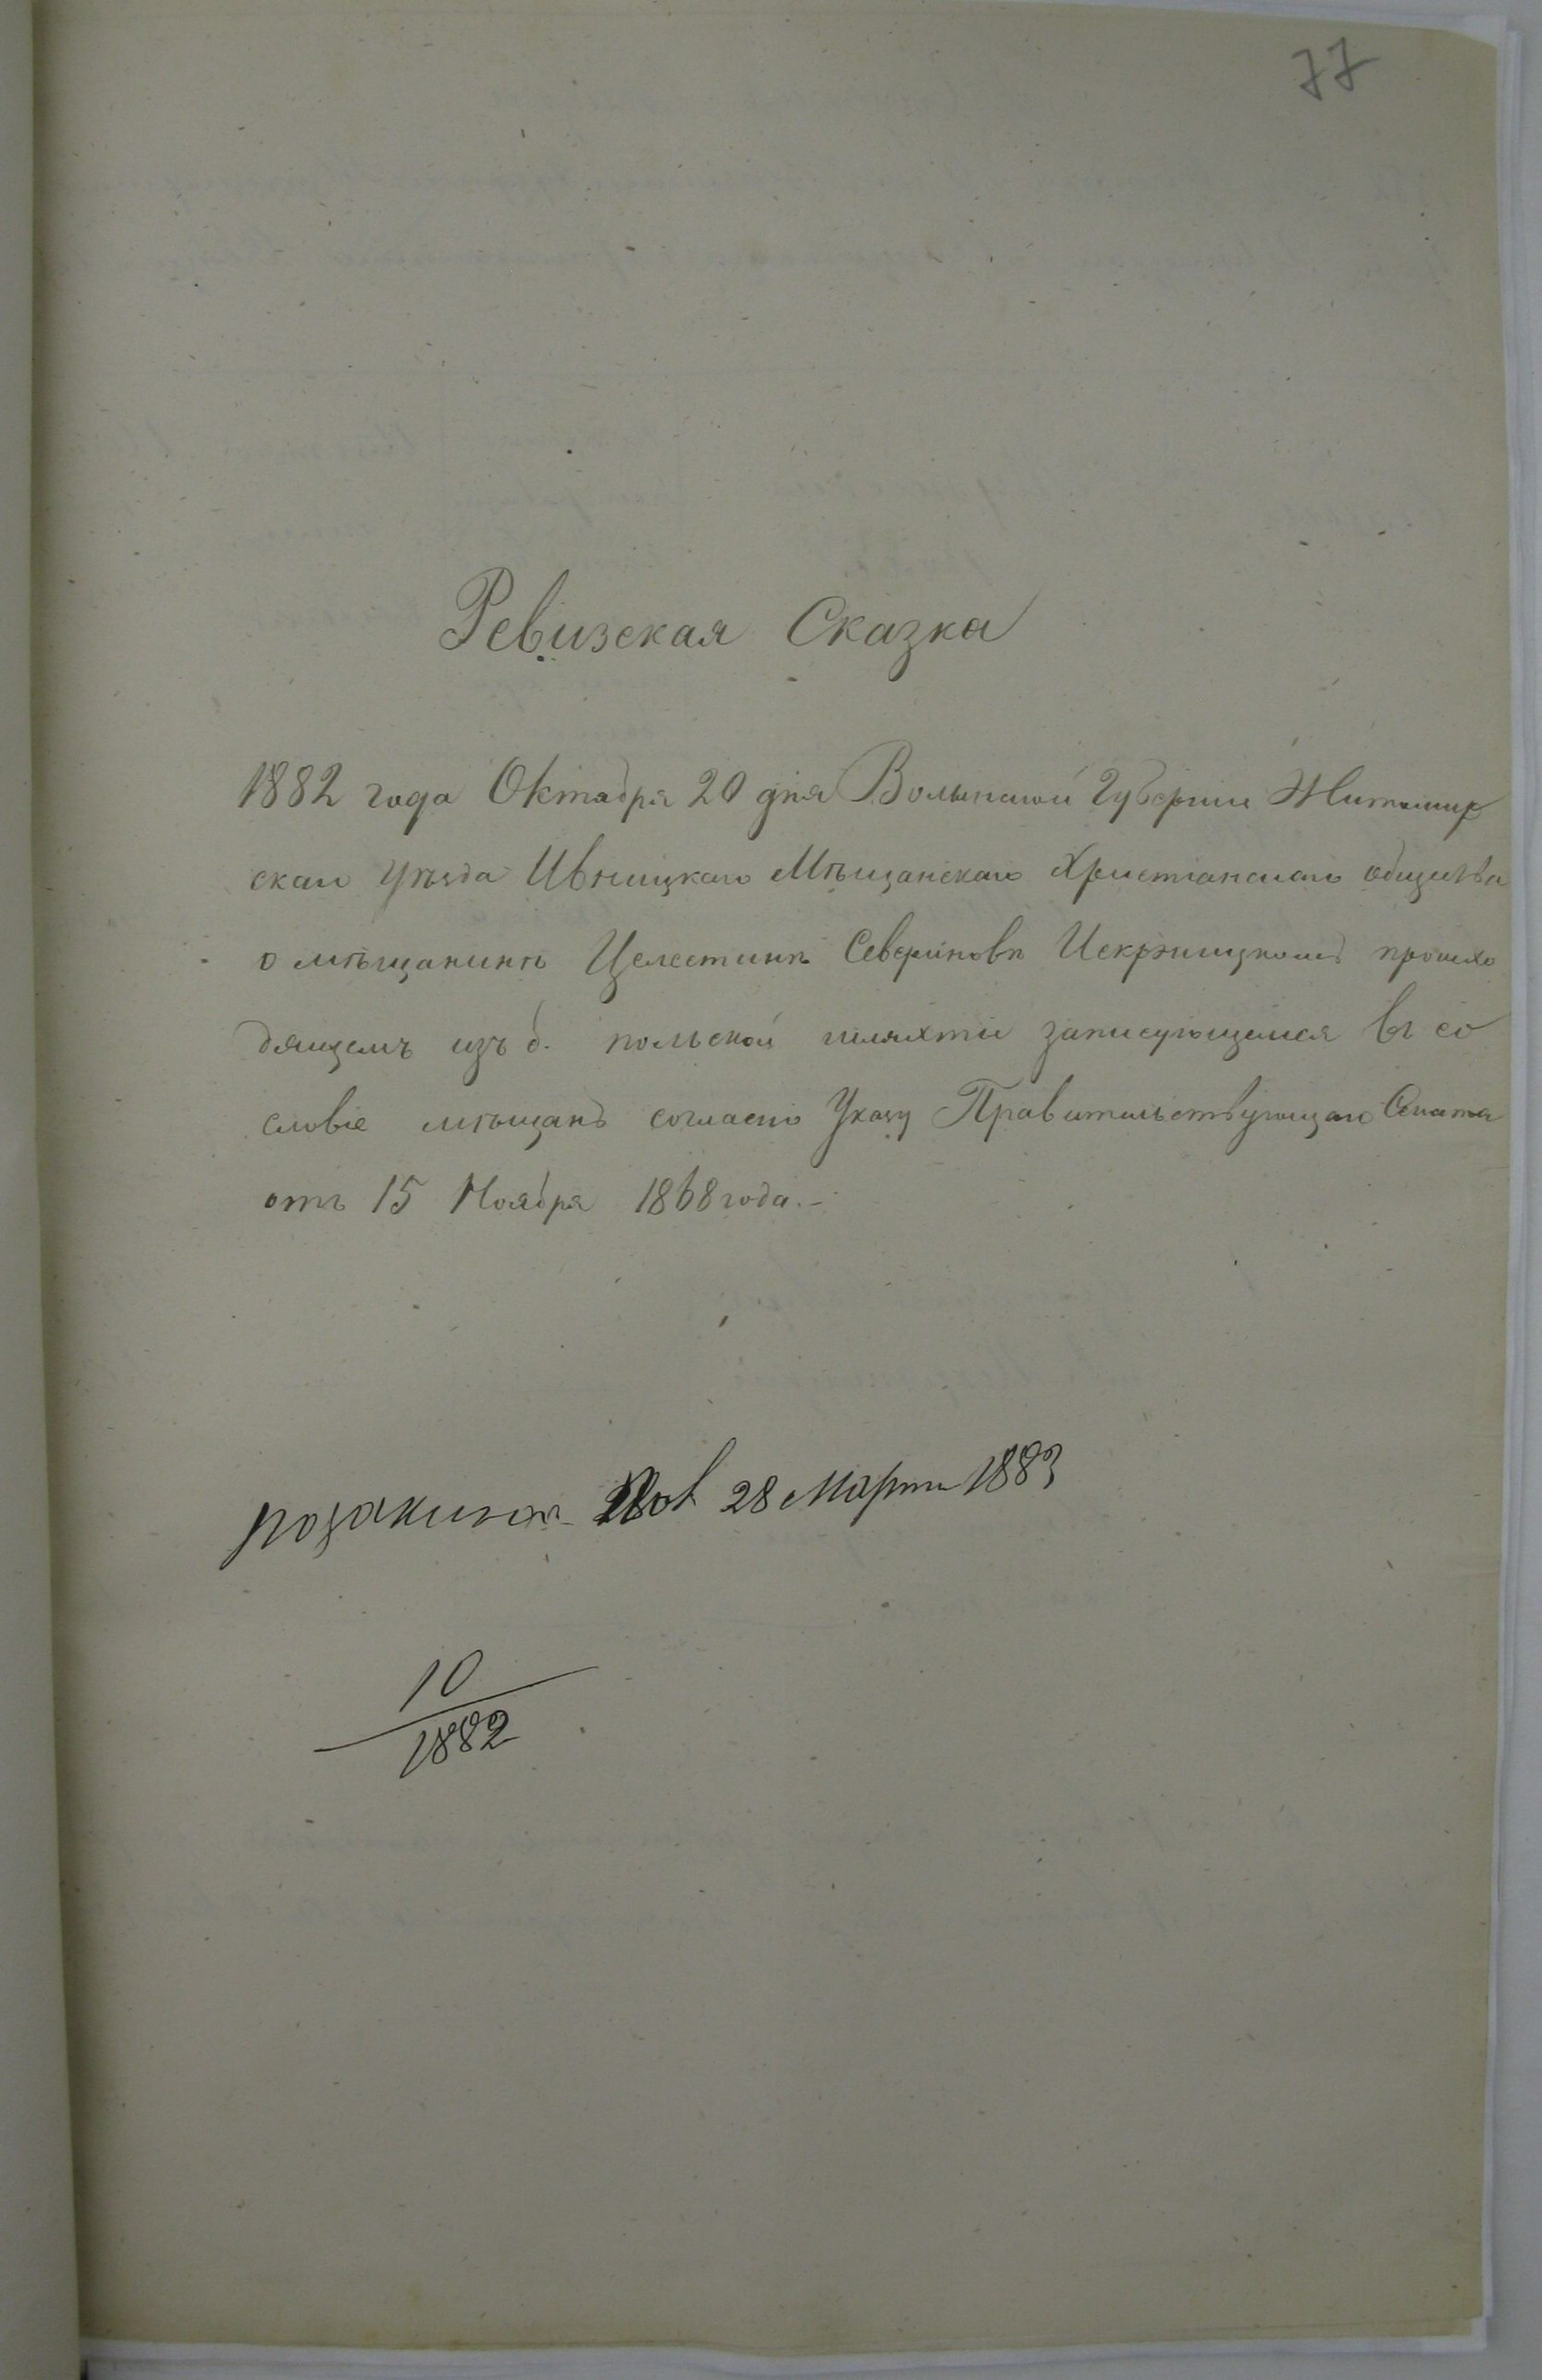 77
Ревизская Сказка
1882 года Октября 20 дня Волынской Губерніи Житомир
скаго Уѣзда Ивницкаго Мѣщанскаго Христіанскаго общества
о мѣщанинѣ Целестинѣ Севериновѣ Искржицкомъ происхо
дящемъ изъ б. польской шляхты записующемся въ со
словіе мѣщанъ согласно Указу Правительствующаго Сената
отъ 15 Ноября 1868 года. –
28 Марта 1883
10
1882